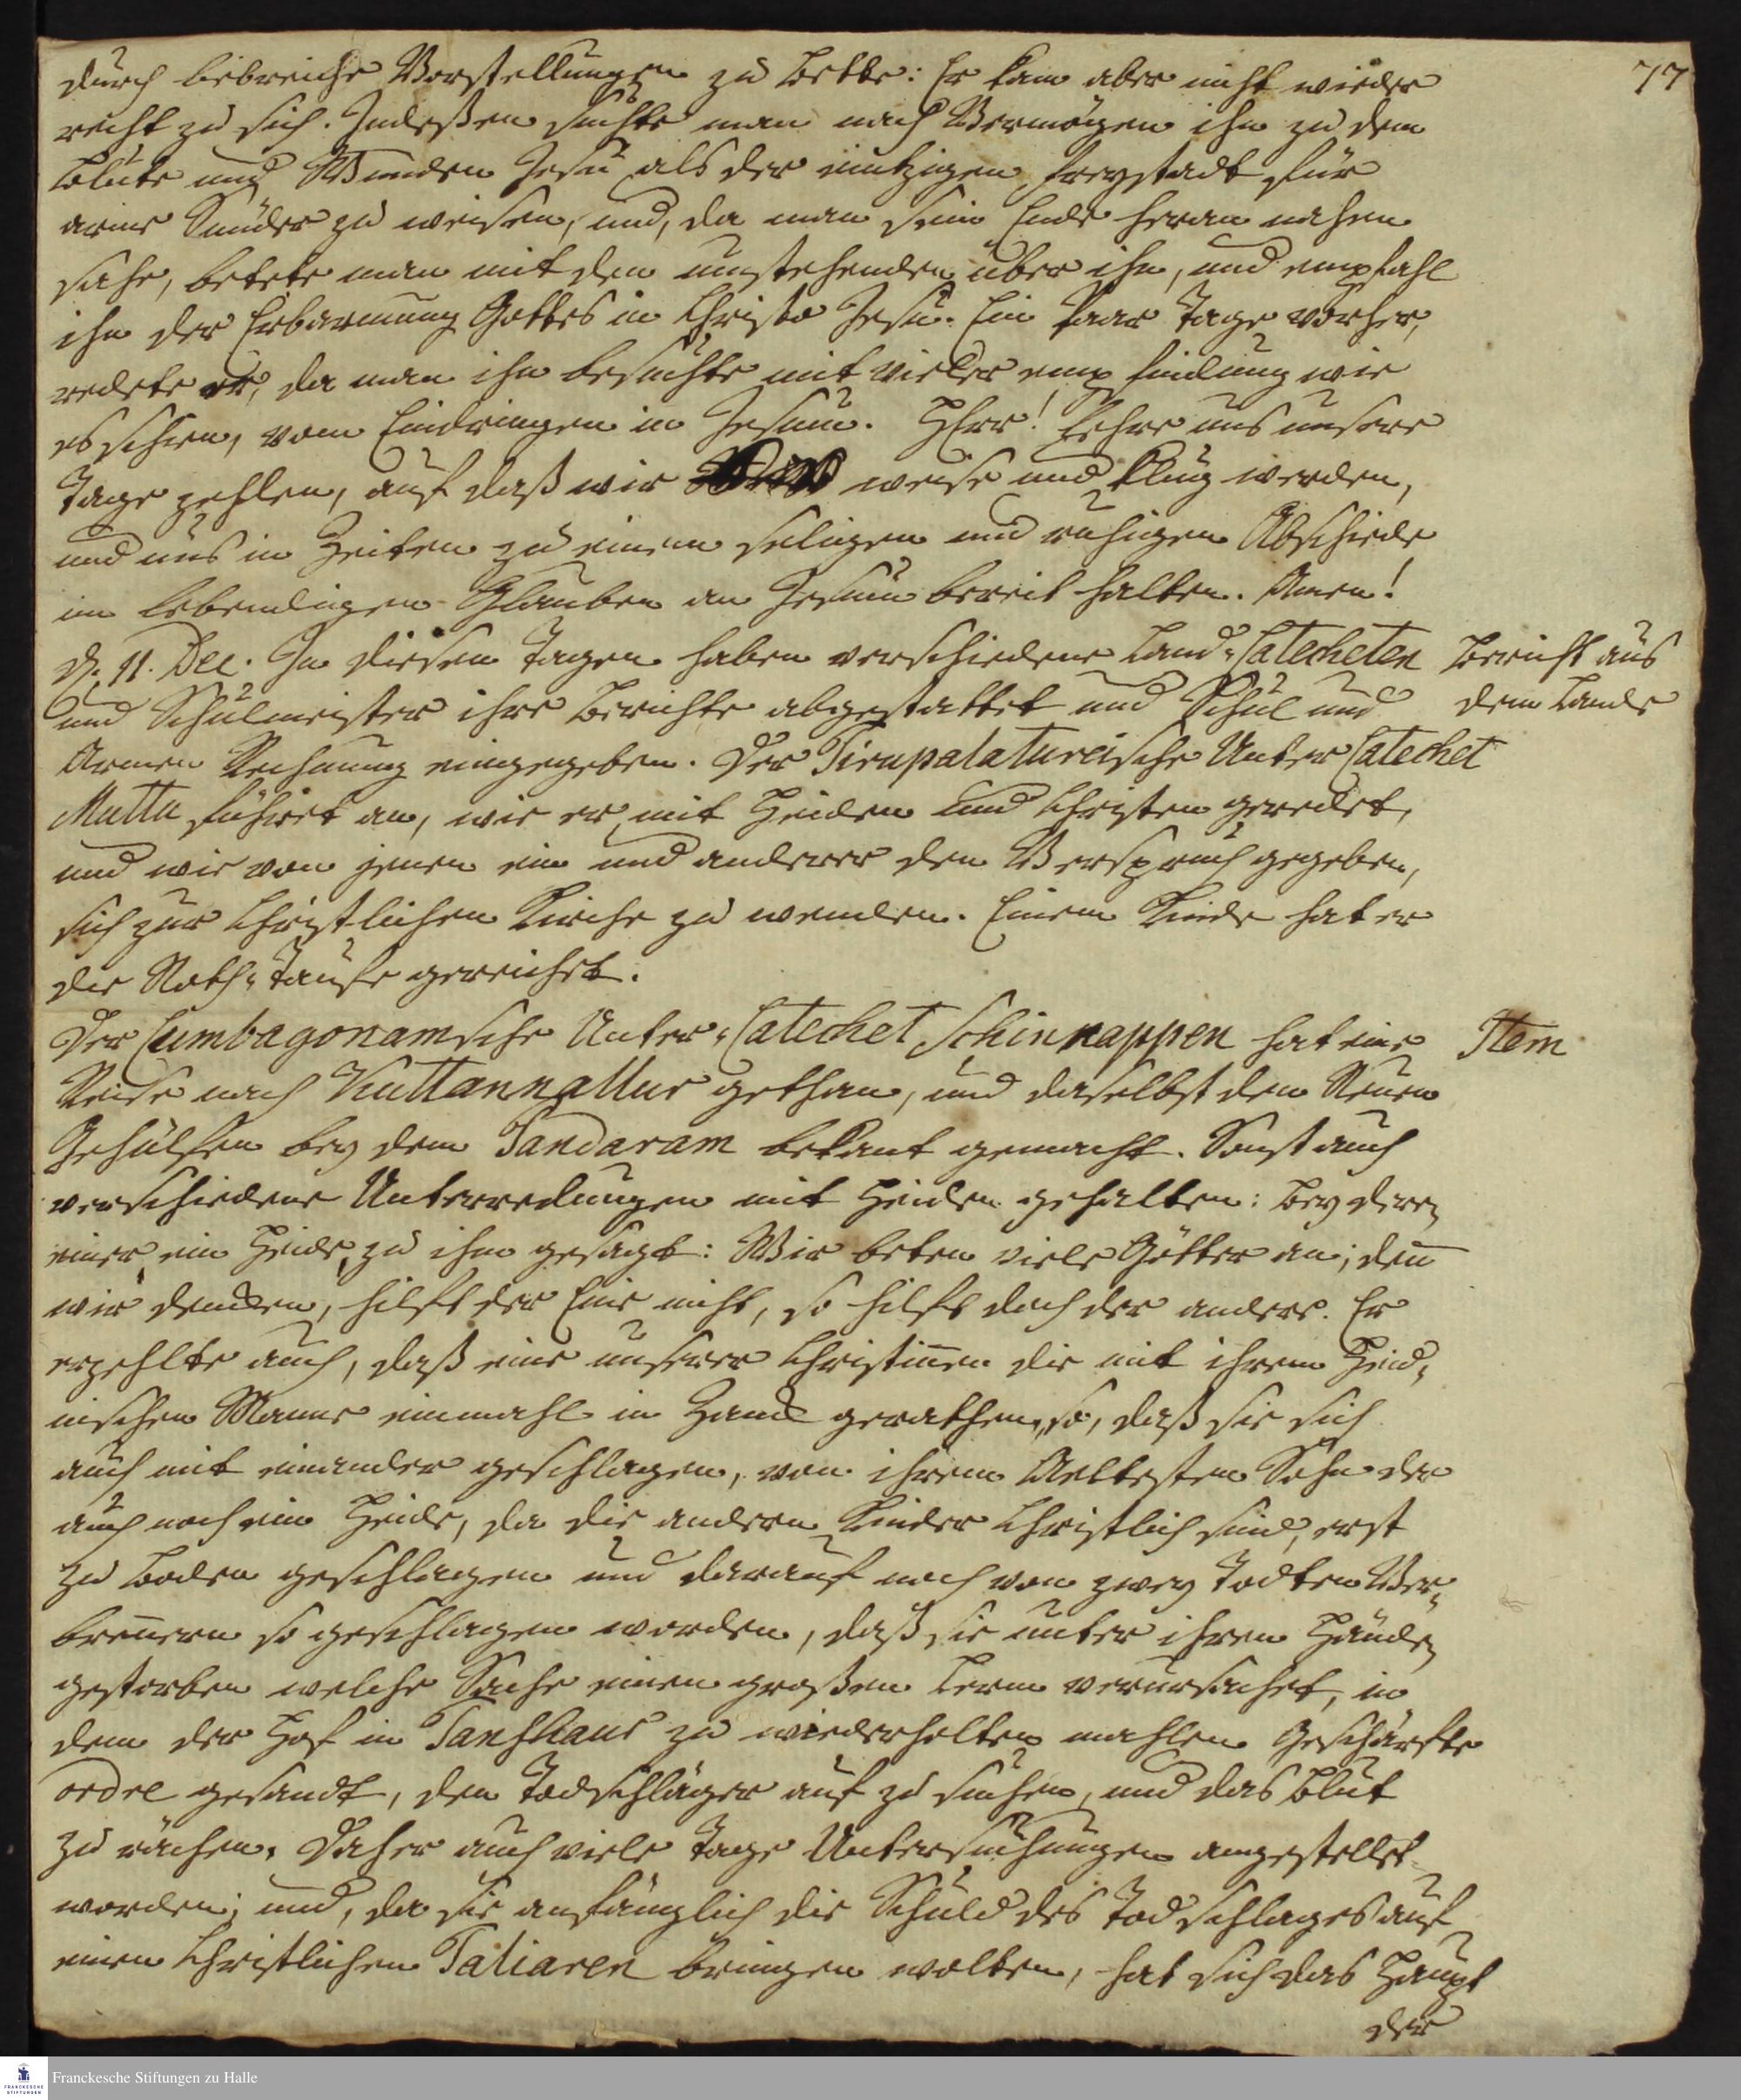 77
durch liebreiche Vorstellungen zu Bette: Er kam aber nicht wieder
recht zu sich. Indeßen suchte man nach Vermögen ihn zu dem
Blute und Wunden Jesu als der eintzigen Freystadt für
arme Sünder zu weisen, und, da man sein Ende heran nahen
sahe, betete man mit den umstehenden über ihn, und empfahl
ihn der Erbarmung Gottes in Christo Jesu. Ein Paar Tage vorher,
redete er, da man ihn besuchte mit vieler empfindung wie
es schien, vom Eindringen in Jesum. HErr! Lehre uns unsere
Tage zehlen, auf daß wir weise und klug werden,
und uns in Zeiten zu einem seligen und ruhigen Abschiede
im lebendigen Glauben an Jesum bereit halten. Amen!
D. 11. Dec. In diesen Tagen haben verschiedene Land-Catecheten
und Schulmeister ihre Berichte abgestattet und Schul und
Armen Rechnung eingegeben. Der Tirupalatureische Unter Catechet
Muttu führet an, wie er mit Heiden und Christen geredet,
und wie von jenen ein und anderer den Verspruch gegeben,
sich zur Christlichen Kirche zu wenden. Einem Kinde hat er
die Noth-Taufe gereichet.
Bericht aus
dem Lande
Der Cumbagonamsche Unter-Catechet Schinnappen hat eine
Reise nach Kuttannallur gethan, und daselbst den Neuen
Gehülfen bey dem Pandaram bekant gemacht. Sonst auch
verschiedene Unterredungen mit Heiden gehalten: bey deren
einer ein Heide zu ihm gesagt: Wir beten viele Götter an; deñ
wir dencken, hilft der Eine nicht, so hilft doch der andere. Er
erzehlte auch, daß eine unserer Christinnen die mit ihrem Heid-
nischen Manne einmahl in Zanck gerathen, so, daß sie sich
auch mit einander geschlagen, von ihrem Aeltesten Sohn der
auch noch ein Heide, da die andern Kinder Christlich sind, erst
zu Boden geschlagen und darauf noch von zwey Todten Ver-
breñern so geschlagen worden, daß sie unter ihren Händen
gestorben welche Sache einen großen Lerm verursachet, in
dem der Hof in Tanschaur zu wiederholten mahlen Geschärfte
ordre gesandt, den Todschläger auf zu suchen, und das Blut
zu rächen. Daher auch viele Tage Untersuchungen angestellet
worden; und, da sie anfänglich die Schuld des Todschlages auf
einen Christlichen Taliaren bringen wolten, hat sich das Haupt
der
Item
Franckesche Stiftungen zu Halle
FRANCKESCHE
STIFTUNGEN